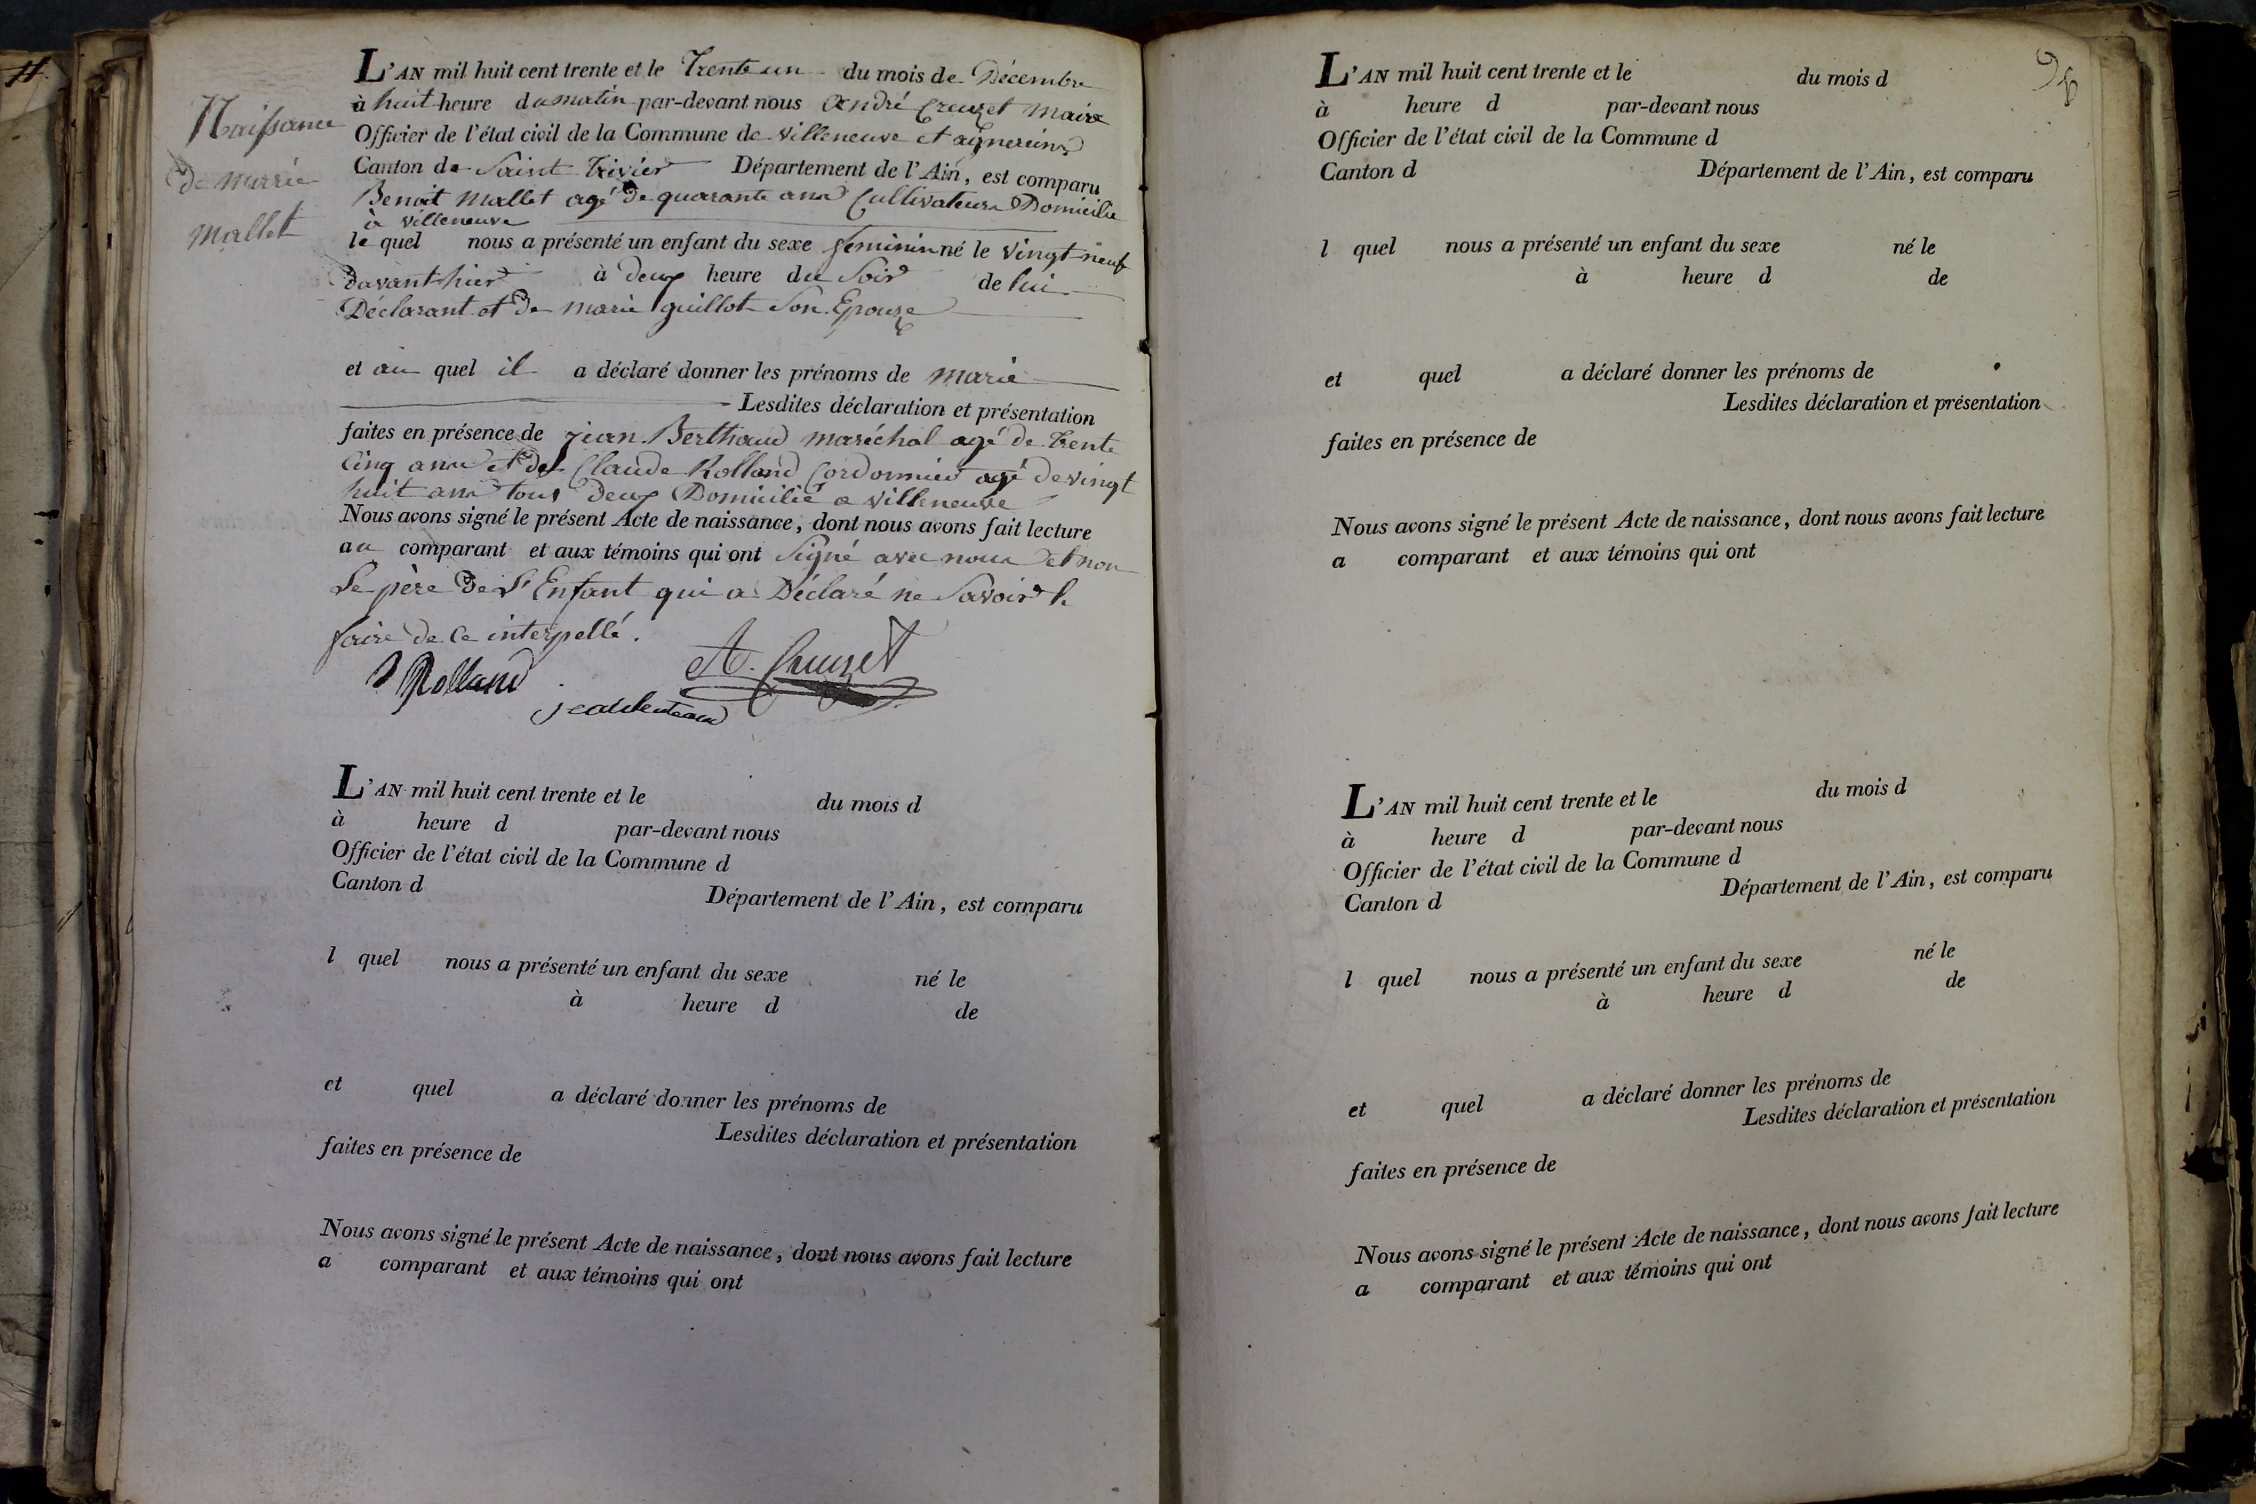 11
Naissance
de marie
mallet
L'AN mil huit cent trente et le Trente un du mois de Décembre
à huit heure du matin par-devant nous andré Creuzet maire
Officier de l'état civil de la Commune de villeneuve et agnereins
Canton de Saint Trivier Département de l'Ain, est comparu
Benoit mallet agé de quarante ans Cultivateur Domicilié
à villeneuve
le quel nous a présenté un enfant du sexe feminin né le vingt neuf
davant hier à deux heure du Soir de lui
Déclarant et De marie guillot Son Epouze
et au quel il a déclaré donner les prénoms de marie
Lesdites déclaration et présentation
faites en présence de jean Berthaud maréchal agé de trente
Cinq ans et de Claude Rolland Cordonnier agé de vingt
huit ans tous deux Domicilié a villeneuve
Nous avons signé le présent Acte de naissance, dont nous avons fait lecture
au comparant et aux témoins qui ont Signé avec nous et non
Le père De L'Enfant qui a Déclaré ne Savoir le
faire de ce interpellé.
Rolland
A. Creuzet
L'AN mil huit cent trente et le du mois d
à heure d par-devant nous
Officier de l'état civil de la Commune d
Canton d Département de l'Ain, est comparu
l quel nous a présenté un enfant du sexe né le
à heure d de
et quel a déclaré donner les prénoms de
Lesdites déclaration et présentation
faites en présence de
Nous avons signé le présent Acte de naissance, dont nous avons fait lecture
a comparant et aux témoins qui ont
L'AN mil huit cent trente et le du mois d
à heure d par-devant nous
Officier de l'état civil de la Commune d
Canton d Département de l'Ain, est comparu
l quel nous a présenté un enfant du sexe né le
à heure d de
et quel a déclaré donner les prénoms de
Lesdites déclaration et présentation
faites en présence de
Nous avons signé le présent Acte de naissance, dont nous avons fait lecture
a comparant et aux témoins qui ont
L'AN mil huit cent trente et le du mois d
à heure d par-devant nous
Officier de l'état civil de la Commune d
Canton d Département de l'Ain, est comparu
l quel nous a présenté un enfant du sexe né le
à heure d de
et quel a déclaré donner les prénoms de
Lesdites déclaration et présentation
faites en présence de
Nous avons signé le présent Acte de naissance, dont nous avons fait lecture
a comparant et aux témoins qui ont